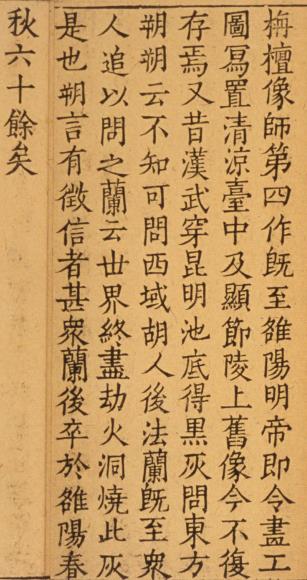 栴檀像師第四作旣至雒陽明帝即令畫工
圖冩置清涼臺中及顯節陵上舊像今不復
存焉又昔漢武穿昆明池底得黑灰問東方
朔朔云不知可問西域胡人後法蘭旣至衆
人追以問之蘭云世界終盡劫火洞燒此灰
是也朔言有徵信者甚衆蘭後卒於雒陽春
秋六十餘矣